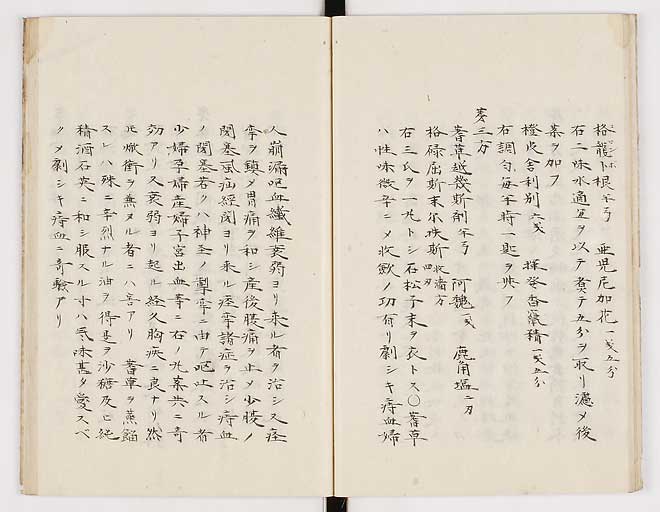 格籠卜根半弓 亜児尼加花一戔五分
右二味水適宜ヲ以テ煮テ五分ヲ取リ濾メ後
茶ヲ加フ
橙皮舎利別六戔 揮発香竄精一戔五分
右調匀毎半時一匙ヲ与フ
第三方
蓍草越幾斯剤半弓 阿魏一戔 鹿角塩二刀
格碌屈斯末尓陝斯収斂方四刀
右三氏ヲ一丸トシ石松子末ヲ衣トス〇蓍草
ハ性味微辛ニメ収斂ノ功有リ劇シキ痔血婦
人崩漏吐血繊維衰弱ヨリ来ル者ヲ治シ又痙
攣ヲ鎮メ胃痛ヲ和シ産後腹痛ヲ止メ少腹ノ
閉塞風病経閉ヨリ来ル痙攣諸症ヲ治シ痔血
ノ閉塞若クハ神圣ノ攣牽ニ由テ呕吐スル者
少婦孕婦産婦子宮出血等ニ右ノ丸茶共ニ奇
効アリ又衰弱ヨリ起ル経久胸疾ニ良ナリ然
𪜈焮衝ヲ兼ヌル者ニハ害アリ 蓍草ヲ蒸餾
スレハ殊ニ辛烈ナル油ヲ得是ヲ沙糖及ヒ純
精酒石英ニ和シ服スル寸ハ気味甚タ愛スベ
クメ劇シキ痔血ニ奇験アリ